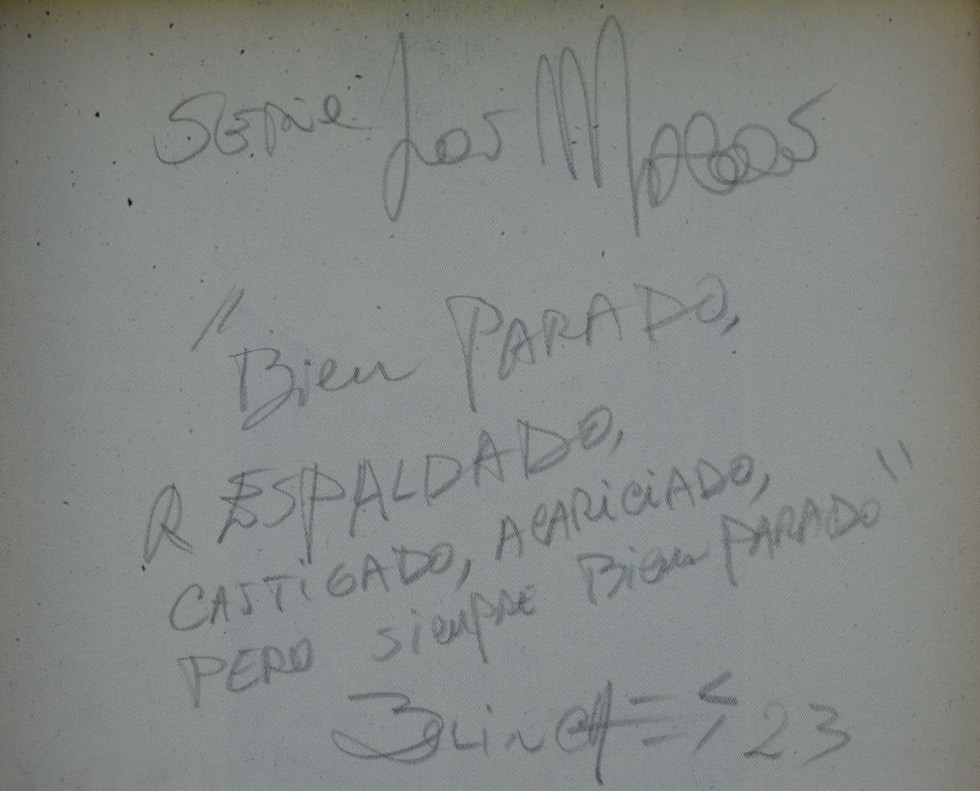 SERIE Los
"Bien PARADO,
RESPALDADO,
CASTIGADO, ACARICIADO,
PERO siempre Bien PARADO"
23